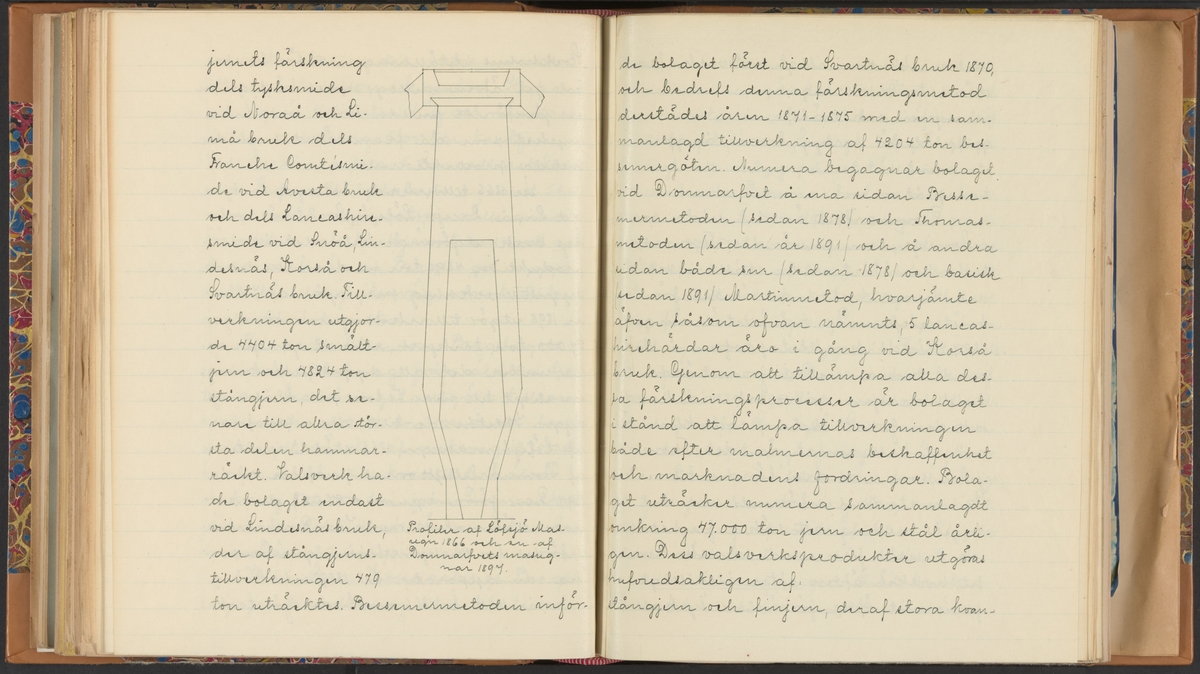 jernets färskning
dels tysksmide
vid Noraå och Li-
må bruk dels
Franche Comtésmi-
de vid Avesta bruk
och dels Lancashire-
smide vid Snöå, Lin-
desnäs, Korså och
Svartnäs bruk. Till-
verkningen utgjor-
de 4404 ton smält-
jern och 4824 ton
stångjern, det se-
nare till allra stör-
sta delen hammar-
räckt. Valsverk ha-
de bolaget endast
vid Lindesnäs bruk,
der af stångjerns-
tillverkningen 479
ton uträcktes. Bessemermetoden inför-
Profiler af Löfsjö Mas-
ugn 1866 och en af
Domnarfvets masug-
nar 1897.
de bolaget först vid Svartnäs bruk 1870,
och bedrefs denna färskningsmetod
derstädes åren 1871-1875 med en sam-
manlagd tillverkning af 4204 ton bes-
semergöten. Numera begagnar bolaget
vid Domnarfvet å ena sidan Besse-
mermetoden (sedan 1878) och Thomas-
metoden (sedan år 1891) och å andra
sidan både sur (sedan 1878) och basisk
sedan 1891) Martinmetod, hvarjämte
äfven såsom ofvan nämnts, 5 lancas-
hirehärdar äro i gång vid Korså
bruk. Genom att tillämpa alla des-
sa färskningsprocesser är bolaget
i stånd att lämpa tillverkningen
både efter malmernas beskaffenhet
och marknadens fordringar. Bola-
get uträcker numera sammanlagdt
omkring 47.000 ton jern och stål årli-
gen. Dess valsverksprodukter utgöras
hufvudsakligen af:
stångjern och finjern, deraf stora kvan-